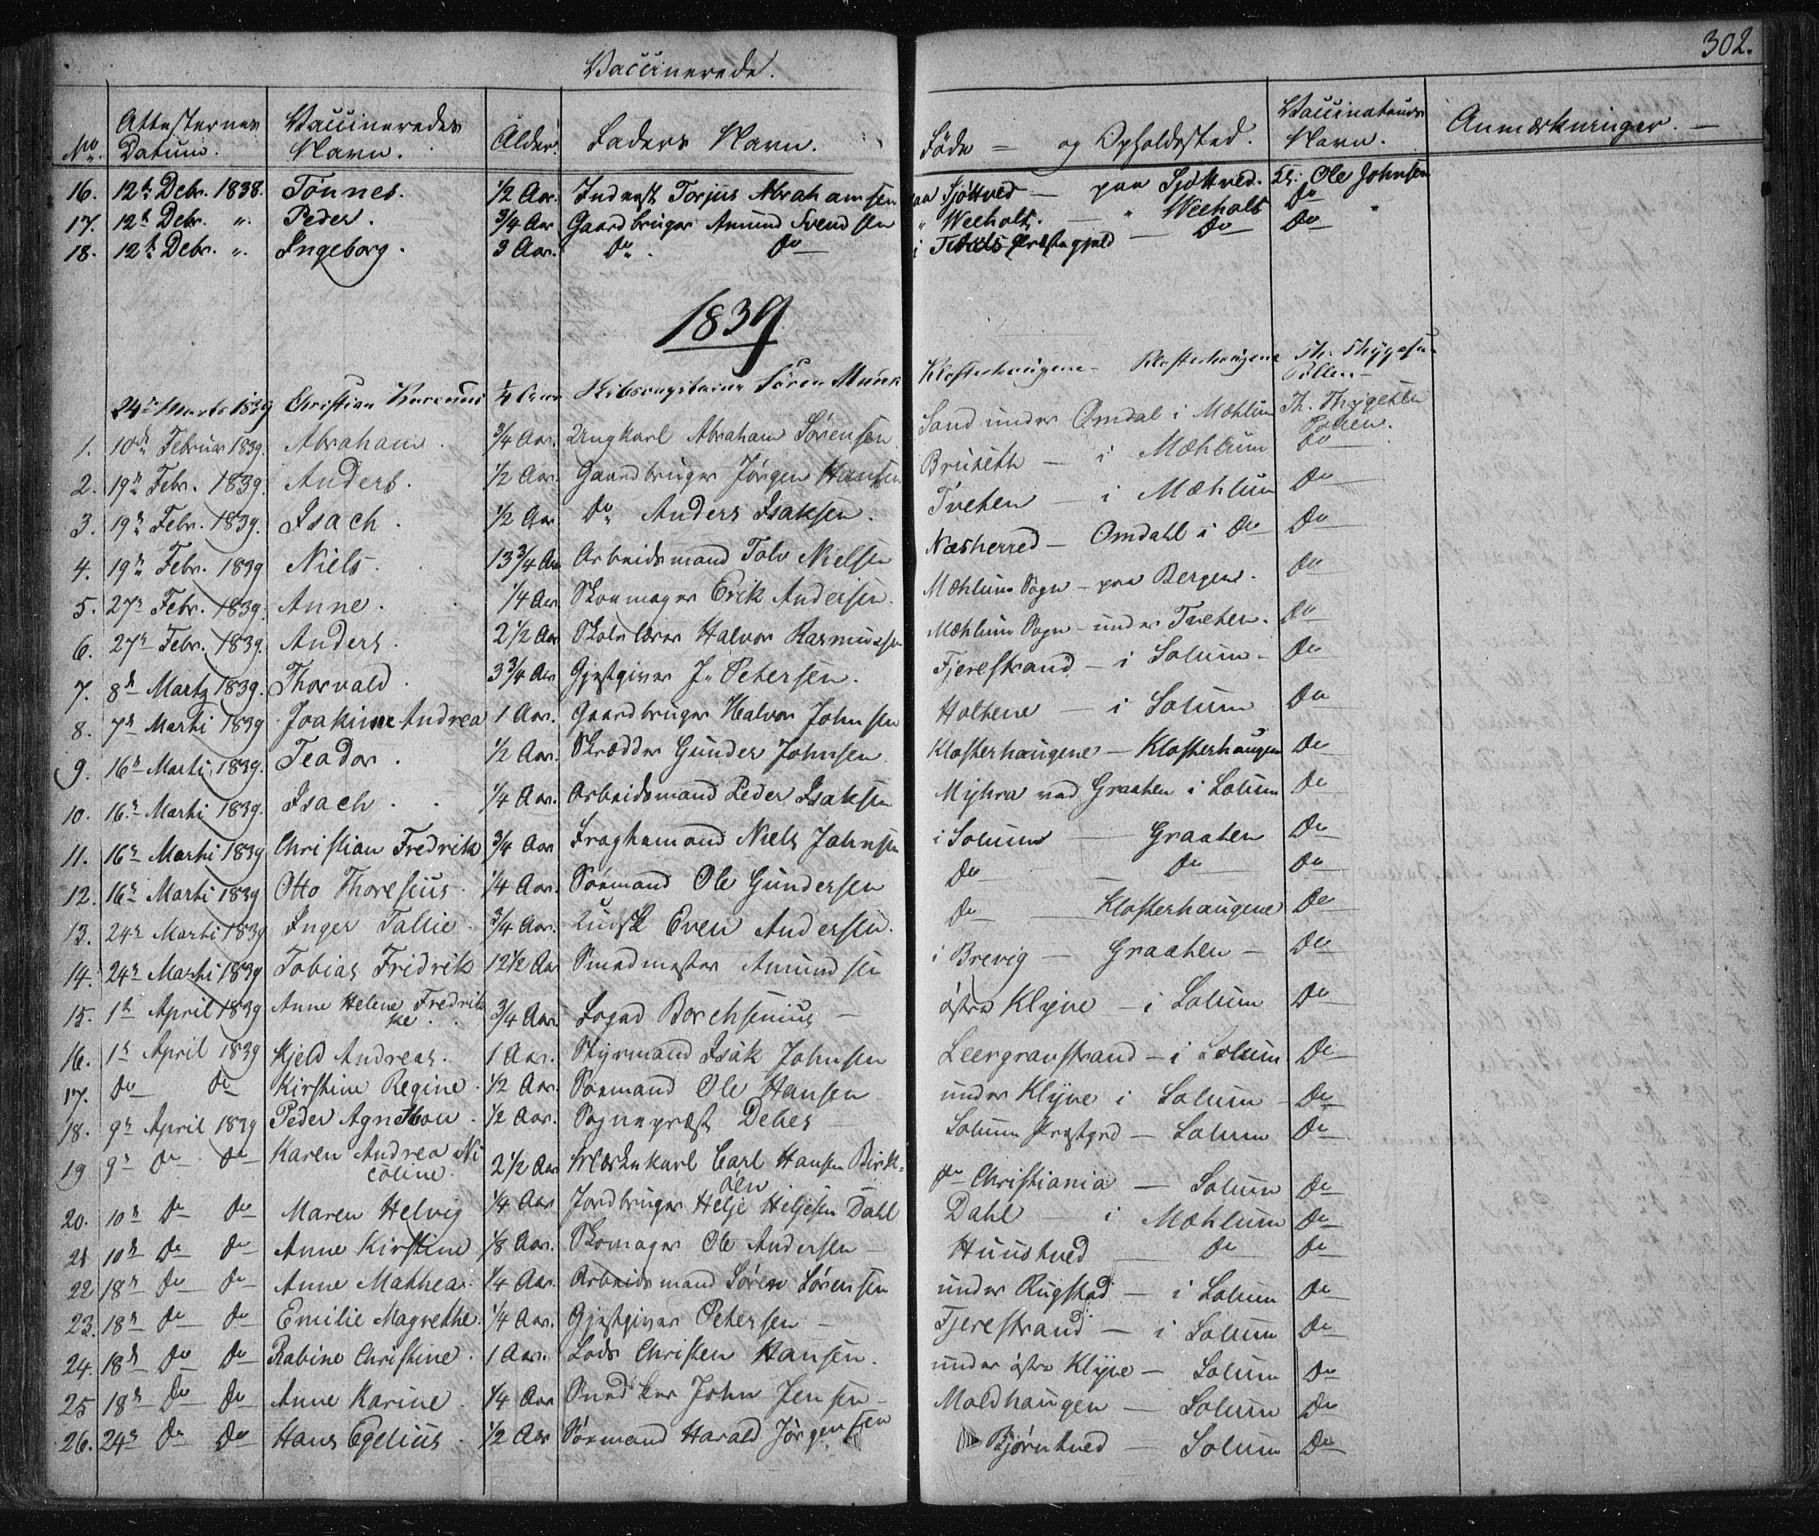 302.
Vaccinerede.
No. Attesternes Datum. Vaccineredes Navn. Alder. Faders Navn. Föde — og Opholdssted. Vaccinateurs Navn. Anmærkninger. —
16. 12te Debr. 1838. Tönnes. 1/2 Aar. Inderst Torjus Abrahamsen paa Sjöttved — paa Sjöttved. Ole Johnsen
17. 12te Debr. " Peder. 3/4 Aar. Gaardbruger Amund Svendsen " Weeholt. — " Weeholt Do
18. 12te Debr. " Ingeborg. 3 Aar. Do Do i Præstegjeld — Do Do
1839
24de Marts 1839 Christian 1/4 Aar Sören Munk Klosterhaugene — Klosterhaugene Th. Thygesen
1. 10de Februar 1839. Abraham. 3/4 Aar. Ungkarl Abraham Sörensen Sand under Omdal i Mæhlum Th. Thygesen
2. 19de Febr. 1839. Anders. 1/2 Aar. Gaardbruger Jörgen Hansen Bruseth — i Mæhlum Do
3. 19de Febr. 1839. Isach. 1/2 Aar. Do Anders Isaksen. Tveten — i Mæhlum Do
4. 19de Febr. 1839 Niels. 13 3/4 Aar Arbeidsmand Tolv Nielsen Næsherred — Omdahl i Do Do
5. 27de Febr. 1839. Anne. 1/4 Aar Skomager Erik Andersen. Mæhlums Sogn — paa Bergen. Do
6. 27de Febr. 1839. Anders. 2 1/2 Aar Skolelærer Halvor Rasmussen Mæhlums Sogn — under Tveten. Do
7. 8de Martz 1839. Thorvald. 3 3/4 Aar Gjestgiver J. Petersen. Fjerestrand — i Solum. Do
8. 7de Marti 1839 Joakime Andrea 1 Aar. Gaardbruger Halvor Johnsen Holtene — i Solum Do
9. 16de Marti 1839. Teador. 1/2 Aar. Skrædder Gunder Johnsen. Klosterhaugene — Klosterhaugen Do
10. 16de Marti 1839. Isach. 1/4 Aar. Arbeidsmand Peder Isaksen Myhra ved Graaten i Solum Do
11. 16de Marti 1839 Christian Fredrik 3/4 Aar Fragtemand Niels Johnsen i Solum — Graaten Do
12. 16de Marti 1839 Otto Thoresius. 1/4 Aar. Sömand Ole Gundersen Do Do Do
13. 24de Marti 1839 Inger Tallie. 3/4 Aar. Even Andersen. Do Klosterhaugene Do
14. 24de Marti 1839 Tobias Fridrik 12 1/2 Aar Smedmester Amundsen i Brevig — Graaten — Do
15. 1te April 1839 Anne Helene Fredrikke. 3/4 Aar Foged Borchsenius — östre Klyve — i Solum Do
16. 1te April 1839 Kjeld Andreas. 1 Aar. Styrmand Isak Johnsen Leergravstrand — i Solum Do
17. Do Do Kirstine Regine. 1/2 Aar. Sömand Ole Hansen under Klyve i Solum — Do
18. 9de April 1839 Peder Agnethon 1/2 Aar. Sognepræst Debes — Solum Præstgrd — Solum Do
19 9de Do Do Karen Andrea Nicoline. 2 1/2 Aar Carl Hansen Birköen Christiania — Solum Do
20. 10de Do Do Maren Helvig 1/4 Aar Jordbruger Helje Heljesen Dahl Dahl — i Mæhlum Do
21 10de Do Do Anne Kirstine 1/8 Aar. Skomager Ole Andersen — Huustved — Do Do
22 18de Do Do Anne Mathea. 1/4 Aar. Arbeidsmand Sören Sörensen under Rugstad — i Solum Do
23. 18de Do Do Emilie Magrethe. 1/4 Aar. Gjestgiver Petersen — Fjerestrand — i Solum Do
24. 18de Do Do Rabine Christine. 1 Aar. Lods Christen Hansen. under östre Klyve — Solum Do
25 18de Do Do Anne Karine. 1/4 Aar Snedker John Jensen — Moldhaugen — Solum Do
26. 24de Do Do Hans Egelius. 1/2 Aar Sömand Harald Jörgensen Björntved — Solum Do